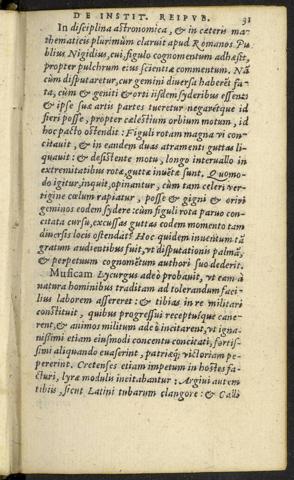 DE INSTIT. REIPVB. 91
In disciplina astronomica, & in cæteris ma-
thematicis plurimùm claruit apud Romanos Pu-
blius Nigidius, cui, figulo cognomentum adhæsit,
propter pulchrum eius scientiæ commentum. Nã
cùm disputaretur, cur gemini diuersa haberẽt fa-
ta, cùm & geniti & orti iisdem syderibus essent
& ipse suæ artis partes tueretur negaretque id
fieri posse, propter cælestium orbium motum, id
hoc pacto ostendit: Figuli rotam magna vi con-
citauit, & in eandem duas atramenti guttas li-
quauit: & desistente motu, longo interuallo in
extremitatibus rotæ guttæ inuẽtæ sunt. Quomo-
do igitur, inquit, opinantur, cùm tam celeri ver-
tigine cælum rapiatur, posse & gigni & oriri
geminos eodem sydere: cùm figuli rota paruo con-
citata cursu, excussas guttas eodem momento tam
diuersis locis ostendat? Hoc quidem inuentum tã
gratum audientibus fuit, vt disputationis palmã,
& perpetuum cognomẽtum authori suo dederit.
Musicam Lycurgus adeò probauit, vt eam à
natura hominibus traditam ad tolerandum faci-
lius laborem assereret: & tibias in re militari
constituit, quibus progressui receptuíque cane-
rent, & animos militum adeò incitarent, vt igna-
uissimi etiam eiusmodi concentu concitati, fortis-
simi aliquando euaserint, patriæq́; victoriam pe-
pererint. Cretenses etiam impetum in hostes fa-
cturi, lyræ modulis incitabantur: Argiui autem
tibiis, sicut Latini tubarum clangore: & Calli